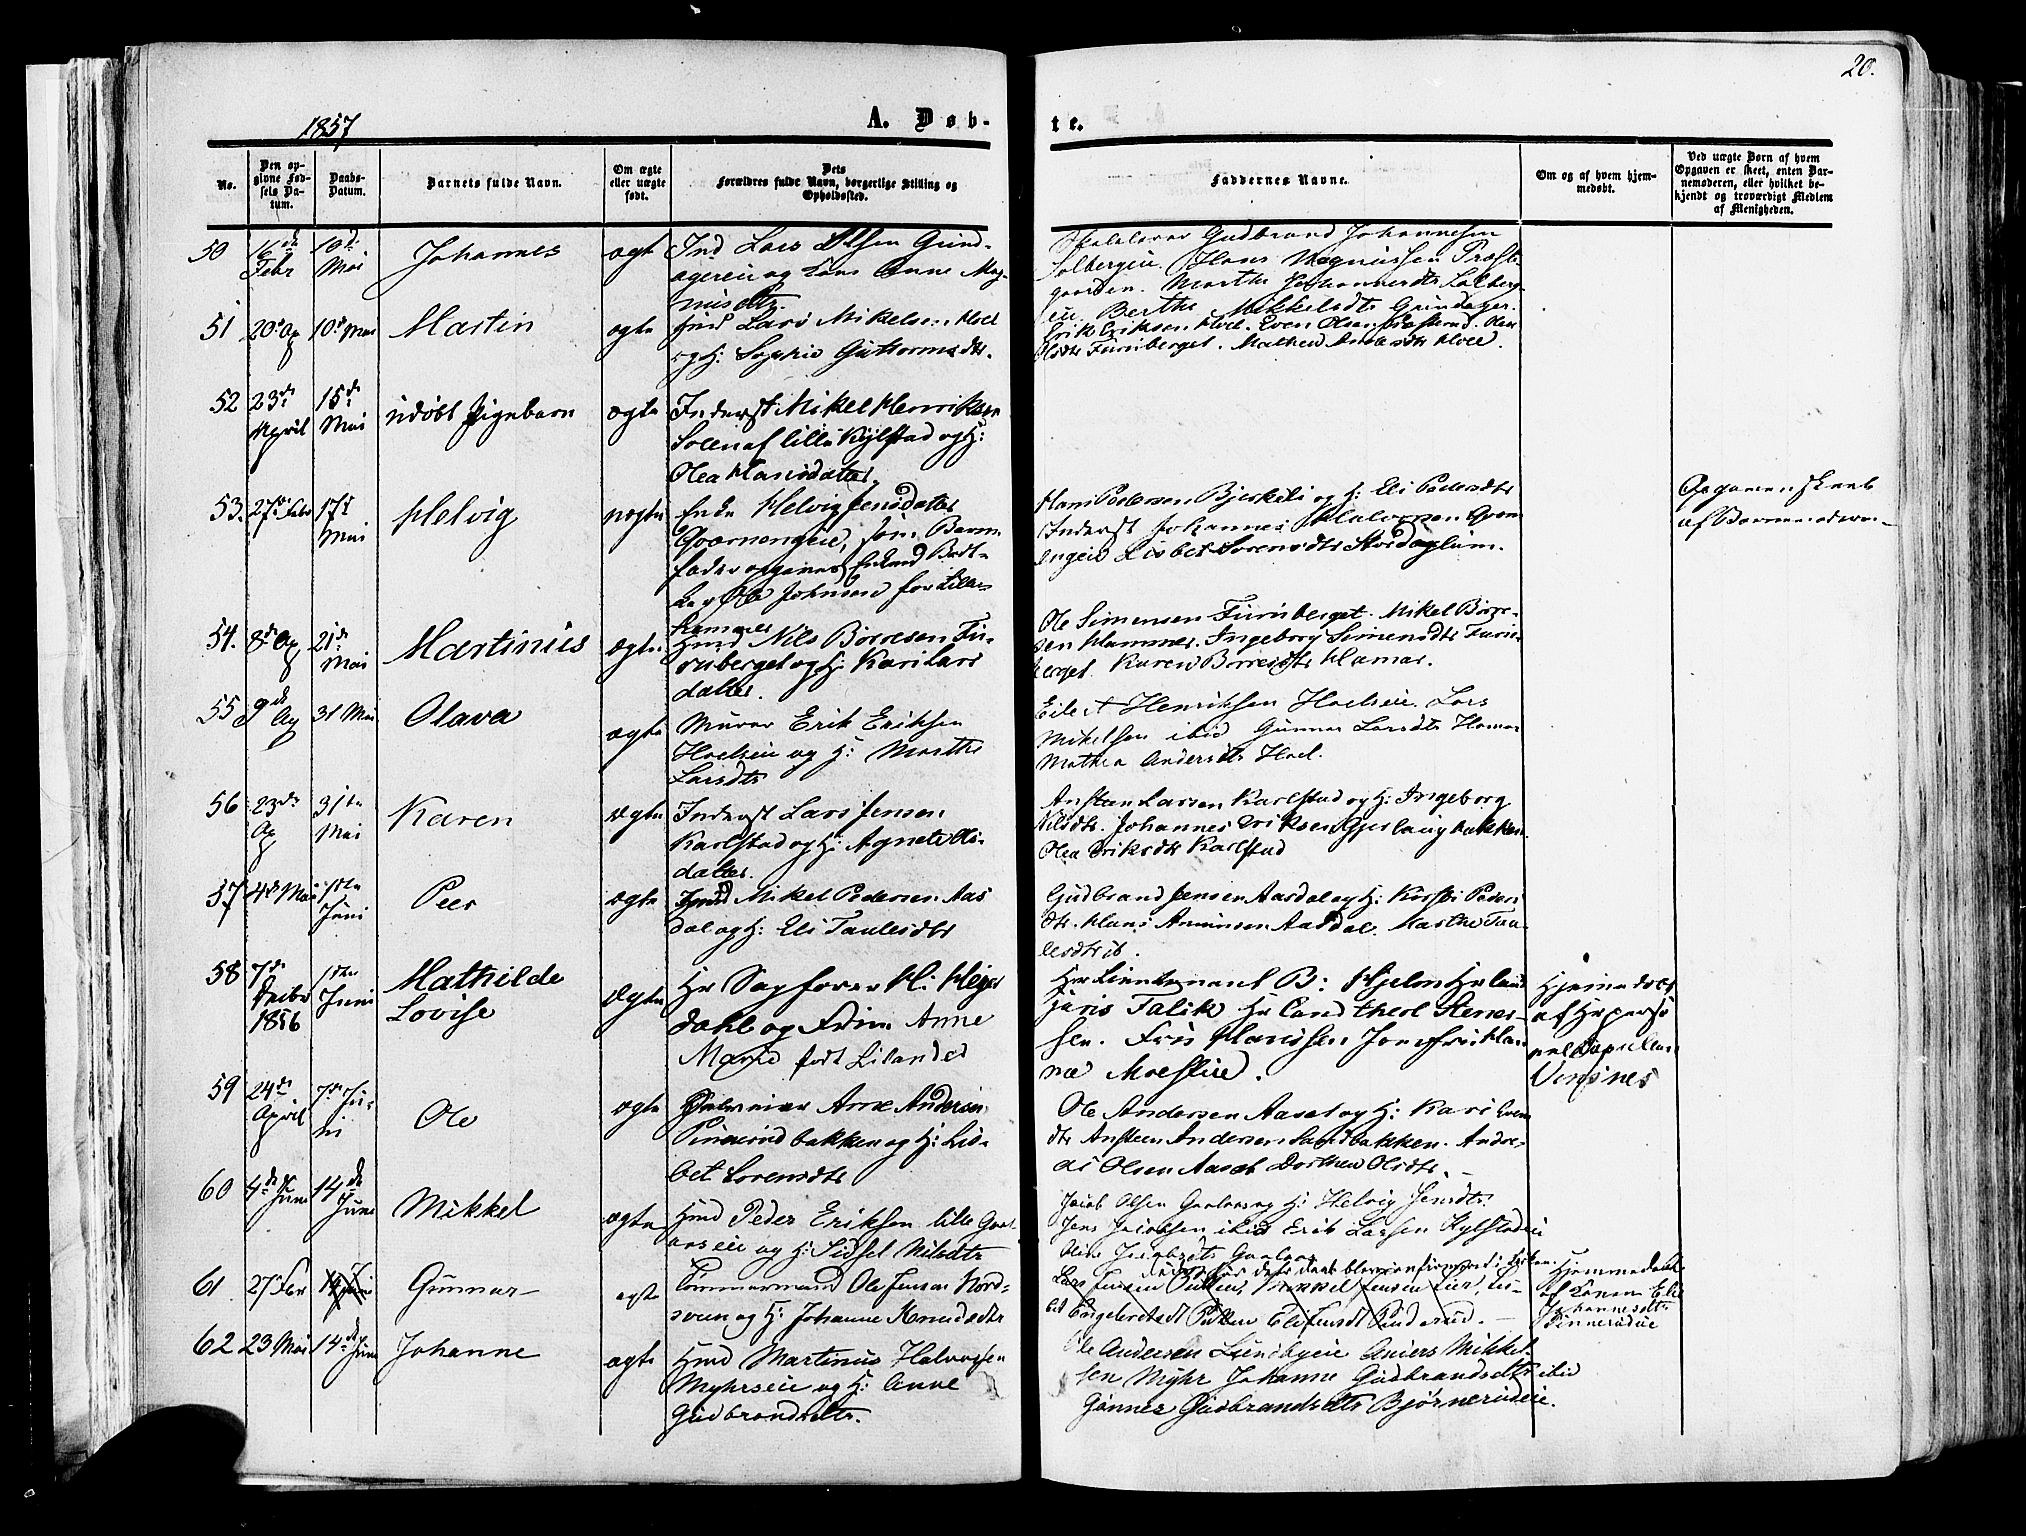 20.
1857
A. Døb-
te.
No.
Den op-
givne Fød-
sels Da-
tum.
Daabs-
Datum.
Barnets fulde Navn.
Om ægte
eller uægte
født.
Dets
Forældres fulde Navn, borgerlige Stilling og
Opholdssted.
Faddernes Navne.
Om og af hvem hjem-
medøbt.
Ved uægte Børn af hvem
Opgaven er skeet, enten Bar-
nemoderen, eller hvilket be-
kjendt og troværdigt Medlem
af Menigheden.
50
16de
Febr
10d:
Mai
Johannes
ægt
Ind Lars Olsen Grind-
agereie og Kone Anne Mag-
nusdtr
Skolelærer Gudbrand Johannesen
Solbergeie. Hans Magnussen Præste-
gaarden. Marthe Johannesdtr Solberg-
eie. Berthe Mikkelsdtr Grindager.
51
20de Ap
10de Mai
Martin
ægte
Huusmd Lars Mikelsen Hoel
og H: Sophie Guttormsdtr.
Erik Eriksen Hoel. Even Olsen
Olsdtr Furuberget. Mathea Andersdtr Hoel.
52
23de
April
15de
Mai
udøbt Pigebarn
ægte
Inderst Mikel Henriksen
Solen af lille Kylstad og H:
Olea Hansdatter.
53.
27de Febr
17de
Mai
Helvig
uægte
Enke Helvig Jensdatter
Gaarnengeie, som Barne-
fader opgives Enkemd
Ole Johnsen for Lille-
hammer
Hans Pedersen Bjerkeli og H: Eli Pedersdtr
Inderst Johannes Halvorsen
engeie Lisbet Sørensdtr
Opgaven skeet
af Barnemoderen
54.
8de Ap
21de
Mai
Martinius
ægte
Huusmd Nils Børresen Fu-
ruberget og H: Kari Lars
datter.
Ole Simensen Furuberget. Mikel Børre-
sen Hammer. Ingeborg Simensdtr Furu-
berget. Karen Børresdtr Hamar.
55
9de
Ap
31 Mai
Olava
ægte
Murer Erik Eriksen
Hoelseie og H: Marthe
Larsdtr
Eilert Henriksen Hoelseie. Lars
Mikelsen ibid Gunnar Larsdtr Hamar
Mathea Andersdtr Hoel.
56
23de
Ap
31te
Mai
Karen
ægte
Inderst Lars Jensen
Karlstad og H: Agnete Ols-
datter.
Ansteen Larsen Karlstad og H: Ingeborg
Nilsdtr. Johannes Eriksen Gjerlaugbakken.
Olea Eriksdtr Karlstad
57
4de Mai
1ste
Juni
Peer
ægte
Huusmd Mikel Pedersen Aas
dal og H: Eli Taulesdtr
Gudbrand Jensen Aasdal og H: Kirsti Peders
dtr. Hans Amunsen Aasdal. Marthe Tau-
lesdtr ib.
58
7de
Decbr
1856
1ste
Juni
Mathilde
Lovise
ægte
Hr Sagfører H: Meyer
Dahl og Fru Anne
Marie født Lilande
Hr Lieutenant B: Hjelm Hr Cand
juris Falik Hr Cand theol Stener-
sen. Frú Hanssen Jomfru Han
næ Moestue.
Hjemmedøbt
af Hr perso
nel Capellan
Vensnes
59
24de
April
7de Ju-
ni
Ole
ægte
Gulvmeier Arne Andersen
Pinnerudbakken og H: Lis-
bet Sorensdtr
Ole Andersen Aaset og H: Kari Evens
dtr Ansteen Andersen Sandbakken. Andre-
as Olsen Aaset Dorthea Olsdtr.
60
4de
Juni
14de
Juni
Mikkel
ægte
Huusmd Peder Eriksen lille Gaal-
aaseie og H: Sidsel Nilsdtr
Jacob Olsen Gaalaas og H: Helvig Jensdtr
Jens Jacobsen ibid Erik Larsen Kylstadeie
Oline Jacobsdtr Gaalaas
61
27de Febr
Gunnar
ægte
Tømmermand Ole Jensen Nord-
sveen og H: Johanne Knudsdtr
døde før dets daab blev confirmeret i kirken.
Lars Jensen Pukken, Mikkel Jensen Lier, Lis-
bet Engebretsdt Pukken Eli Jensdt Pinderud.
Hjemmedøbt
af Konen Elie
Johannesdtr
Pinnerudeie
62
23 Mai
14de Juni
Johanne
ægte
Huusmd Martinus Halvorsen
Myhrseie og H: Anne
Gudbrandsdtr.
Ole Andersen Lundbyeie Anders Mikkel-
sen Myhr Johanne Gudbrandsdtr ibid
Gunner Gudbrandsdtr Bjørnerudeie.